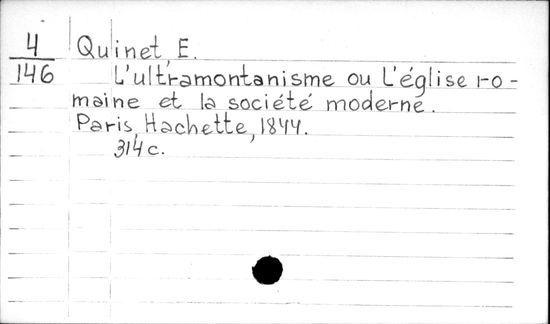 4 Quinet, E.
146 L'ultramontanisme ou L'église ro-
maine et la société moderne.
Paris, Hachette, 1844.
314 c.